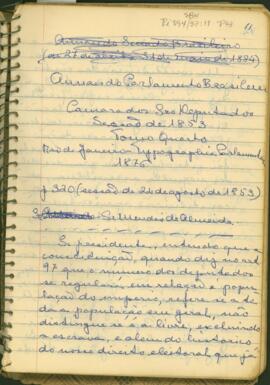 Annaes do Senado Brasileiro
Annaes do Parlamento Brasileiro
Camara dos Srs Deputados
Sessão de 1853
Tomo Quarto
Rio de Janeiro, Typographia Parlamentar
1876
p 320 (sessão de 24 de agosto de 1853)
Sr Mendes de Almeida
Sr. presidente, entendo que a
constituição, quando diz no art
97 que o numero dos deputados
se regulará em relação á popu
lação do imperio, refere-se a to
da a população em geral, não
distingue se é a livre, excluindo
a escrava, e além do luctuoso
do nosso direito eleitoral que já